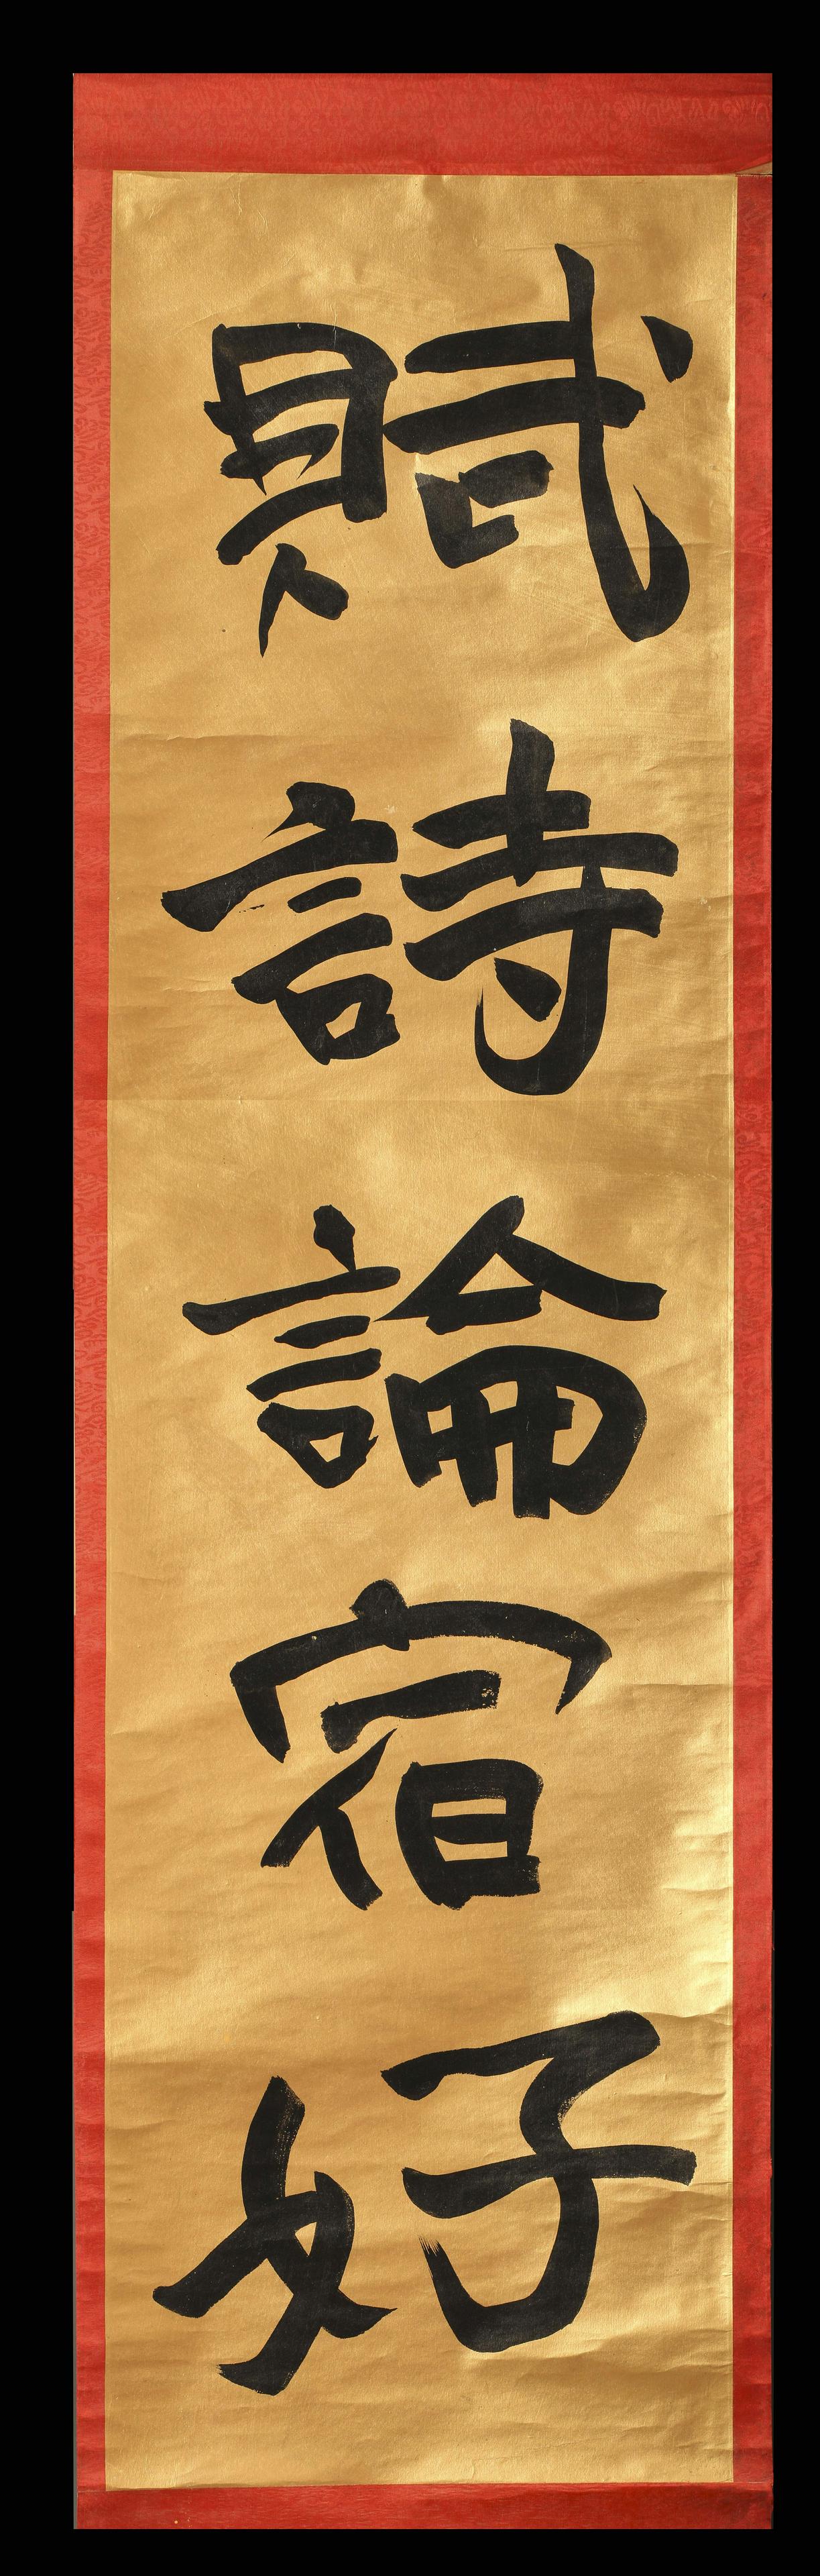 賦詩論宿好